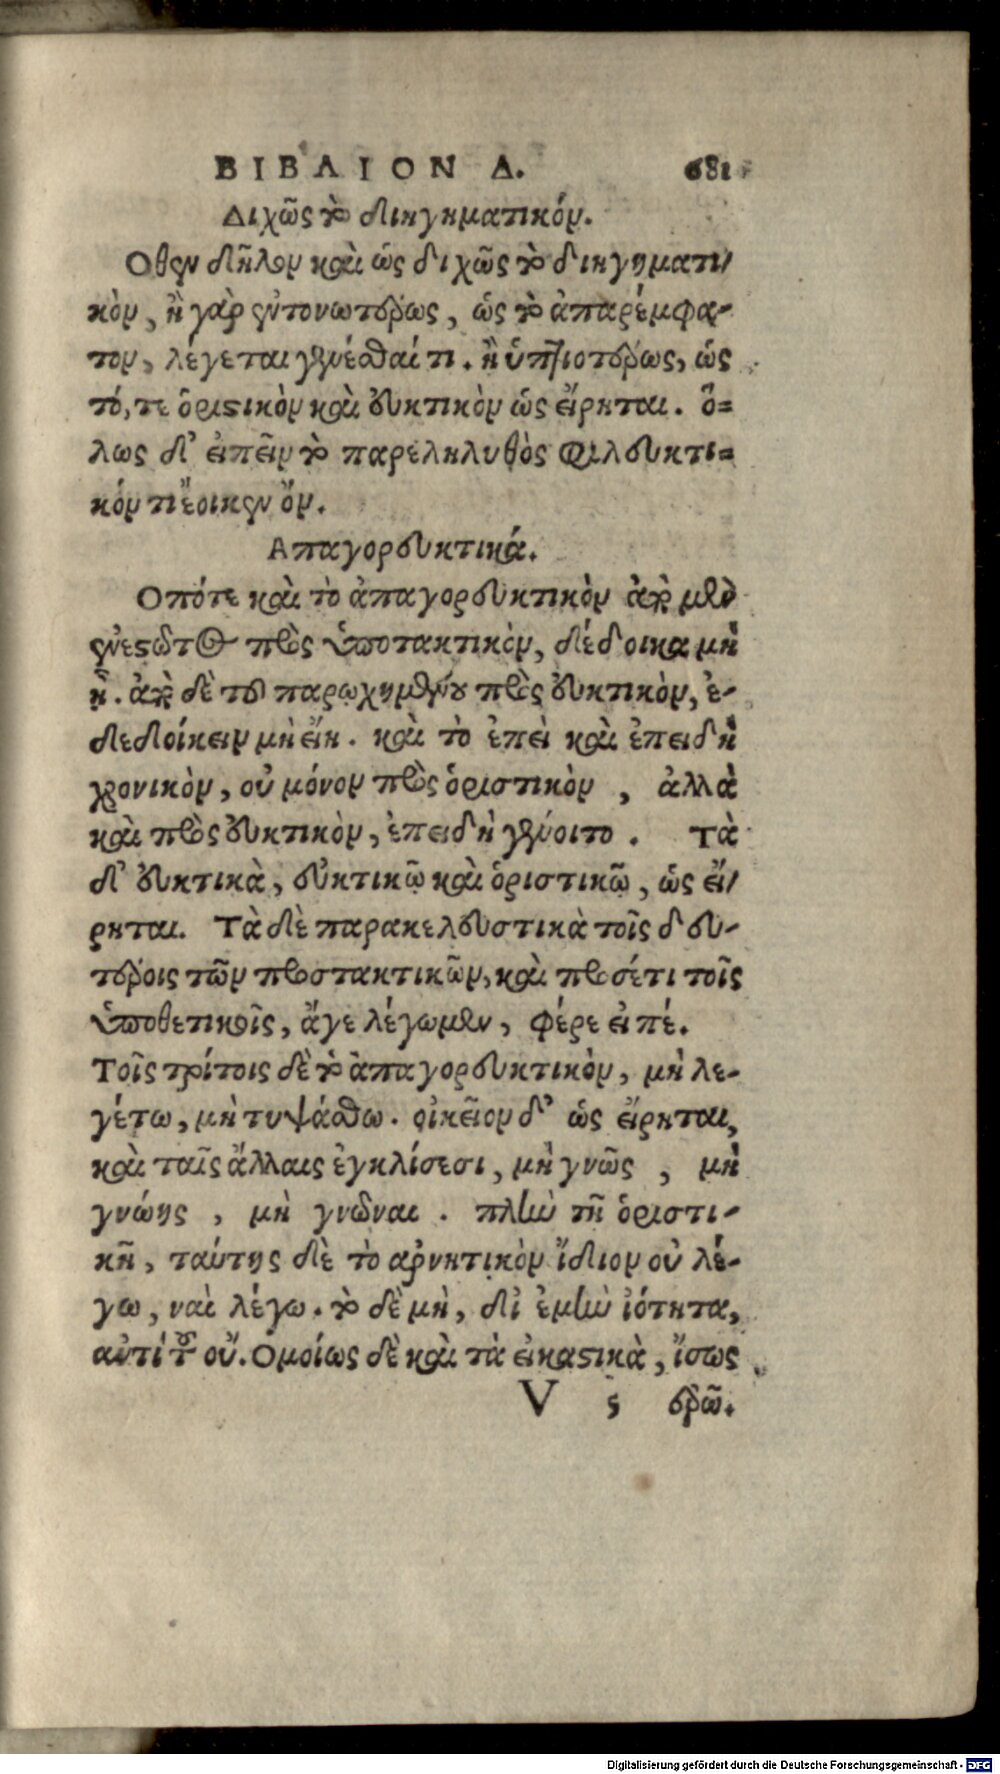 ΒΙΒΛΙΟΝ Δ. 681
Διχῶς τὸ διηγηματικόν.
Οθεν δῆλον καὶ ὡς διχῶς τὸ διηγηματι-
κὸν, ἢ γὰρ ἐντονωτέρως, ὡς τὸ ἀπαρέμφα-
τον, λέγεται γενέσθαί τι. ἢ ὑπτιοτέρως, ὡς
τό, τε ὁριστικὸν καὶ εὐκτικὸν ὡς εἴρηται. ὅ-
λως δ' εἰπεῖν τὸ παρεληλυθὸς φιλευκτι-
κόν τι ἔοικεν ὄν.
Απαγορευκτικά.
Οπότε καὶ τὸ ἀπαγορευκτικὸν ἀπὸ μὲν
ἐνεστῶτος πρὸς ὑποτακτικὸν, δέδοικα μὴ
ᾖ. ἀπὸ δὲ τοῦ παρῳχημένου πρὸς εὐκτικὸν, ἐ-
δεδοίκειν μὴ εἴη. καὶ τὸ ἐπεὶ καὶ ἐπειδὴ
χρονικὸν, οὐ μόνον πρὸς ὁριστικὸν, ἀλλὰ
καὶ πρὸς εὐκτικὸν, ἐπειδὴ γένοιτο. Τὰ
δ' εὐκτικὰ, εὐκτικῷ καὶ ὁριστικῷ, ὡς εἴ-
ρηται. Τὰ δὲ παρακελευστικὰ τοῖς δευ-
τέροις τῶν προστακτικῶν, καὶ προσέτι τοῖς
ὑποθετικοῖς, ἄγε λέγωμεν, φέρε εἰπέ.
Τοῖς τρίτοις δὲ τὸ ἀπαγορευκτικὸν, μὴ λε-
γέτω, μὴ τυψάσθω. οἰκεῖον δ' ὡς εἴρηται,
καὶ ταῖς ἄλλαις ἐγκλίσεσι, μὴ γνῶς, μὴ
γνώῃς, μὴ γνῶναι. πλὴν τῇ ὁριστι-
κῇ, ταύτης δὲ τὸ αρνητικὸν ἴδιον οὐ λέ-
γω, ναὶ λέγω. τὸ δὲ μὴ, δι' ἐμὴν ἰότητα,
αὐτὶ τοῦ οὔ. Ομοίως δὲ καὶ τὰ εἰκαστικὰ, ἴσως
V 5 ἐρῶ.
Digitalisierung gefördert durch die Deutsche Forschungsgemeinschaft - DFG